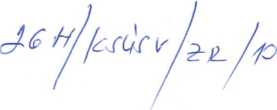 26H/KSÚSV/ZR/10